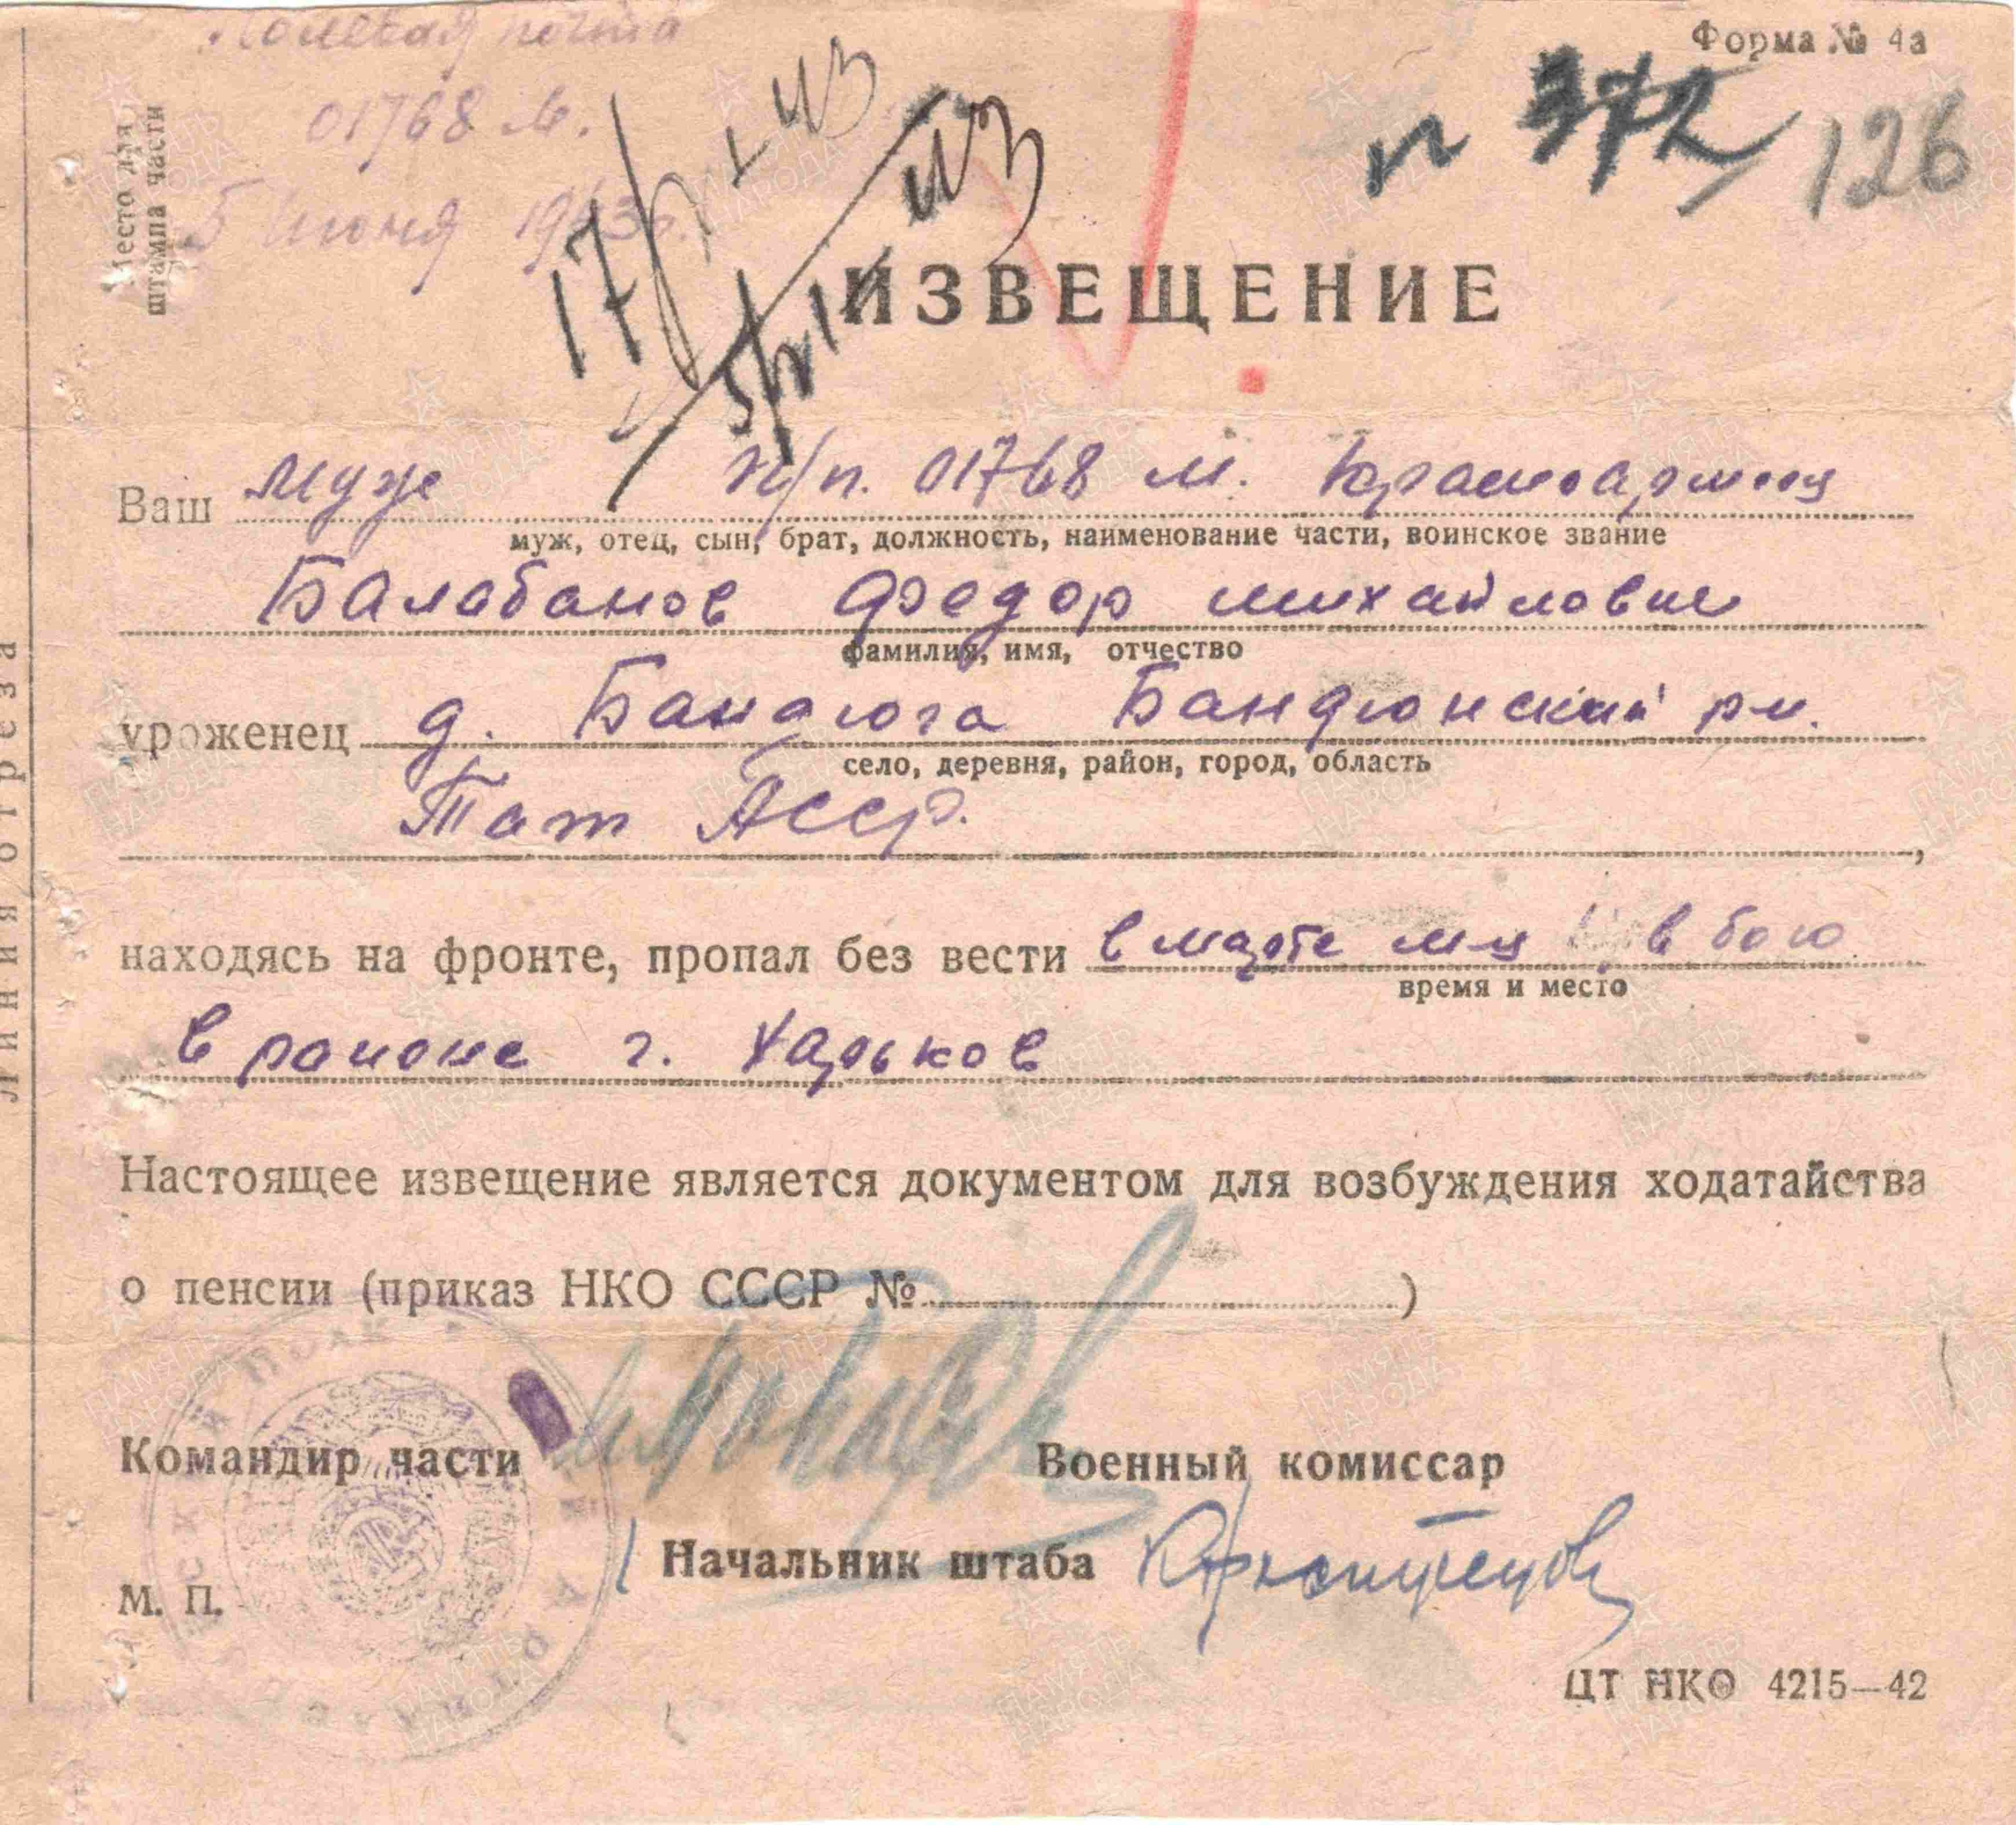 Полевая почта
01768 м.
5 июня 1943 г.
Место для
штампа части
Форма № 4а
372
126
17/
ИЗВЕЩЕНИЕ
Ваш муж п/п. 01768 м. Красноармеец
муж, отец, сын, брат, должность, наименование части, воинское звание
Балабанов Федор михайлович
фамилия, имя, отчество
уроженец д. Бандюга Бандюжский рн.
село, деревня, район, город, область
Тат АССР.
находясь на фронте, пропал без вести в марте м-ц в бою
время и место
в районе г. Харьков
Настоящее извещение является документом для возбуждения ходатайства
о пенсии (приказ НКО СССР № )
Командир части
Военный комиссар
Начальник штаба
М. П.
ЦТ НКО 4215—42
Линия отреза
ПАМЯТЬ НАРОДА